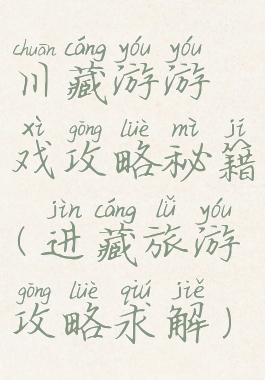 chuān cáng yóu yóu
川藏游游
xì gōng lüè mì jí
戏攻略秘籍
jìn cáng lǚ yóu
(进藏旅游
gōng lüè qiú jiě
攻略求解)